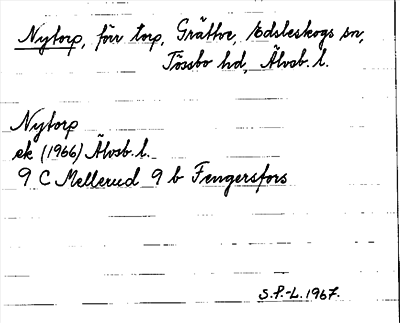 Nytorp, förr torp, Gräthve, Ödsleskogs sn,
Tössbo hd, Älvsb. l.
Nytorp
ek (1966) Älvsb. l.
9 C Mellerud 9 b Fengersfors
S.P.-L. 1967.